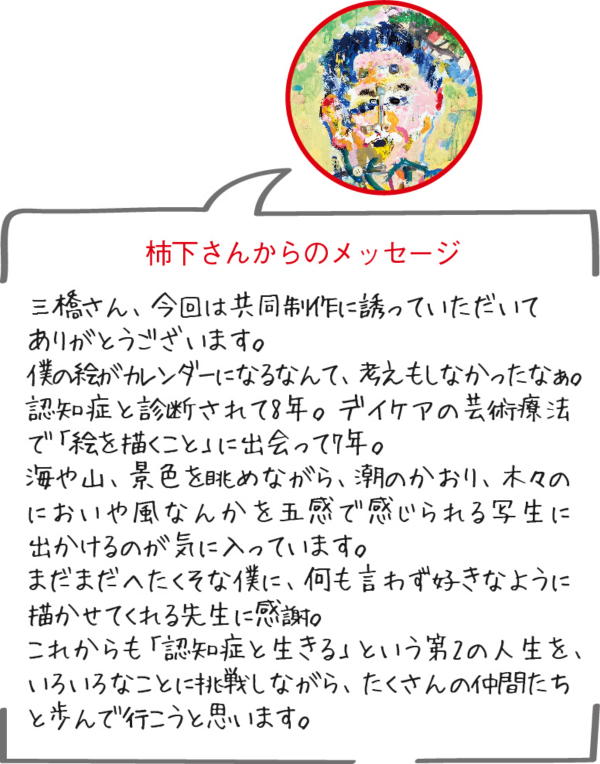 柿下さんからのメッセージ
三橋さん、今回は共同制作に誘っていただいて
ありがとうございます。
僕の絵がカレンダーになるなんて、考えもしなかったなぁ。
認知症と診断されて8年。デイケアの芸術療法
で「絵を描くこと」に出会って7年。
海や山、景色を眺めながら、潮のかおり、木々の
においや風なんかを五感で感じられる写生に
出かけるのが気に入っています。
まだまだへたくそな僕に、何も言わず好きなように
描かせてくれる先生に感謝。
これからも「認知症と生きる」という第2の人生を、
いろいろなことに挑戦しながら、たくさんの仲間たち
と歩んで行こうと思います。